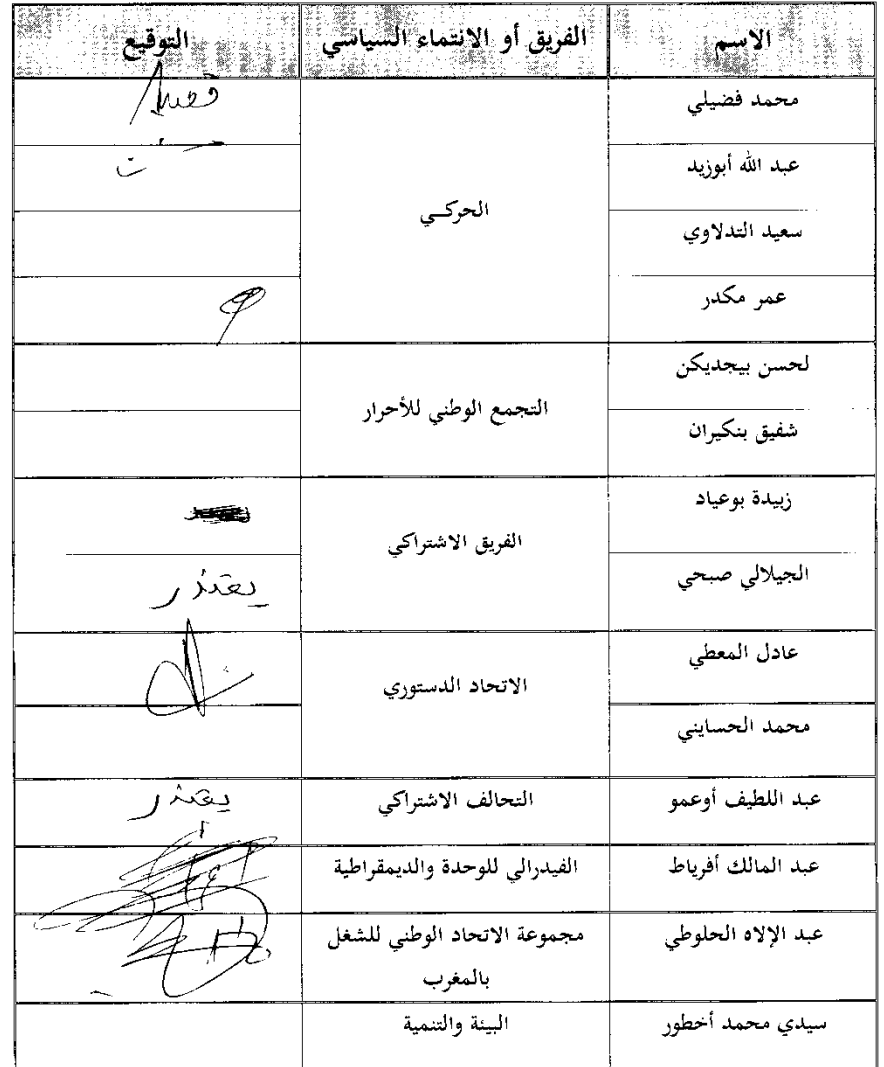 الاسم
الفريق أو الانتماء السياسي
التوقيع
محمد فضيلي
عبد الله أبوزيد
الحركــي
سعيد التدلاوي
عمر مكدر
لحسن بيجديكن
التجمع الوطني للأحرار
شفيق بنكيران
زبيدة بوعياد
الفريق الاشتراكي
الجيلالي صبحي
يعتذر
عادل المعطي
الاتحاد الدستوري
محمد الحسايني
عبد اللطيف أوعمو
التحالف الاشتراكي
يعتذر
عبد المالك أفرياط
الفيدرالي للوحدة والديمقراطية
عبد الإلاه الحلوطي
مجموعة الاتحاد الوطني للشغل
بالمغرب
سيدي محمد أخطور
البيئة والتنمية